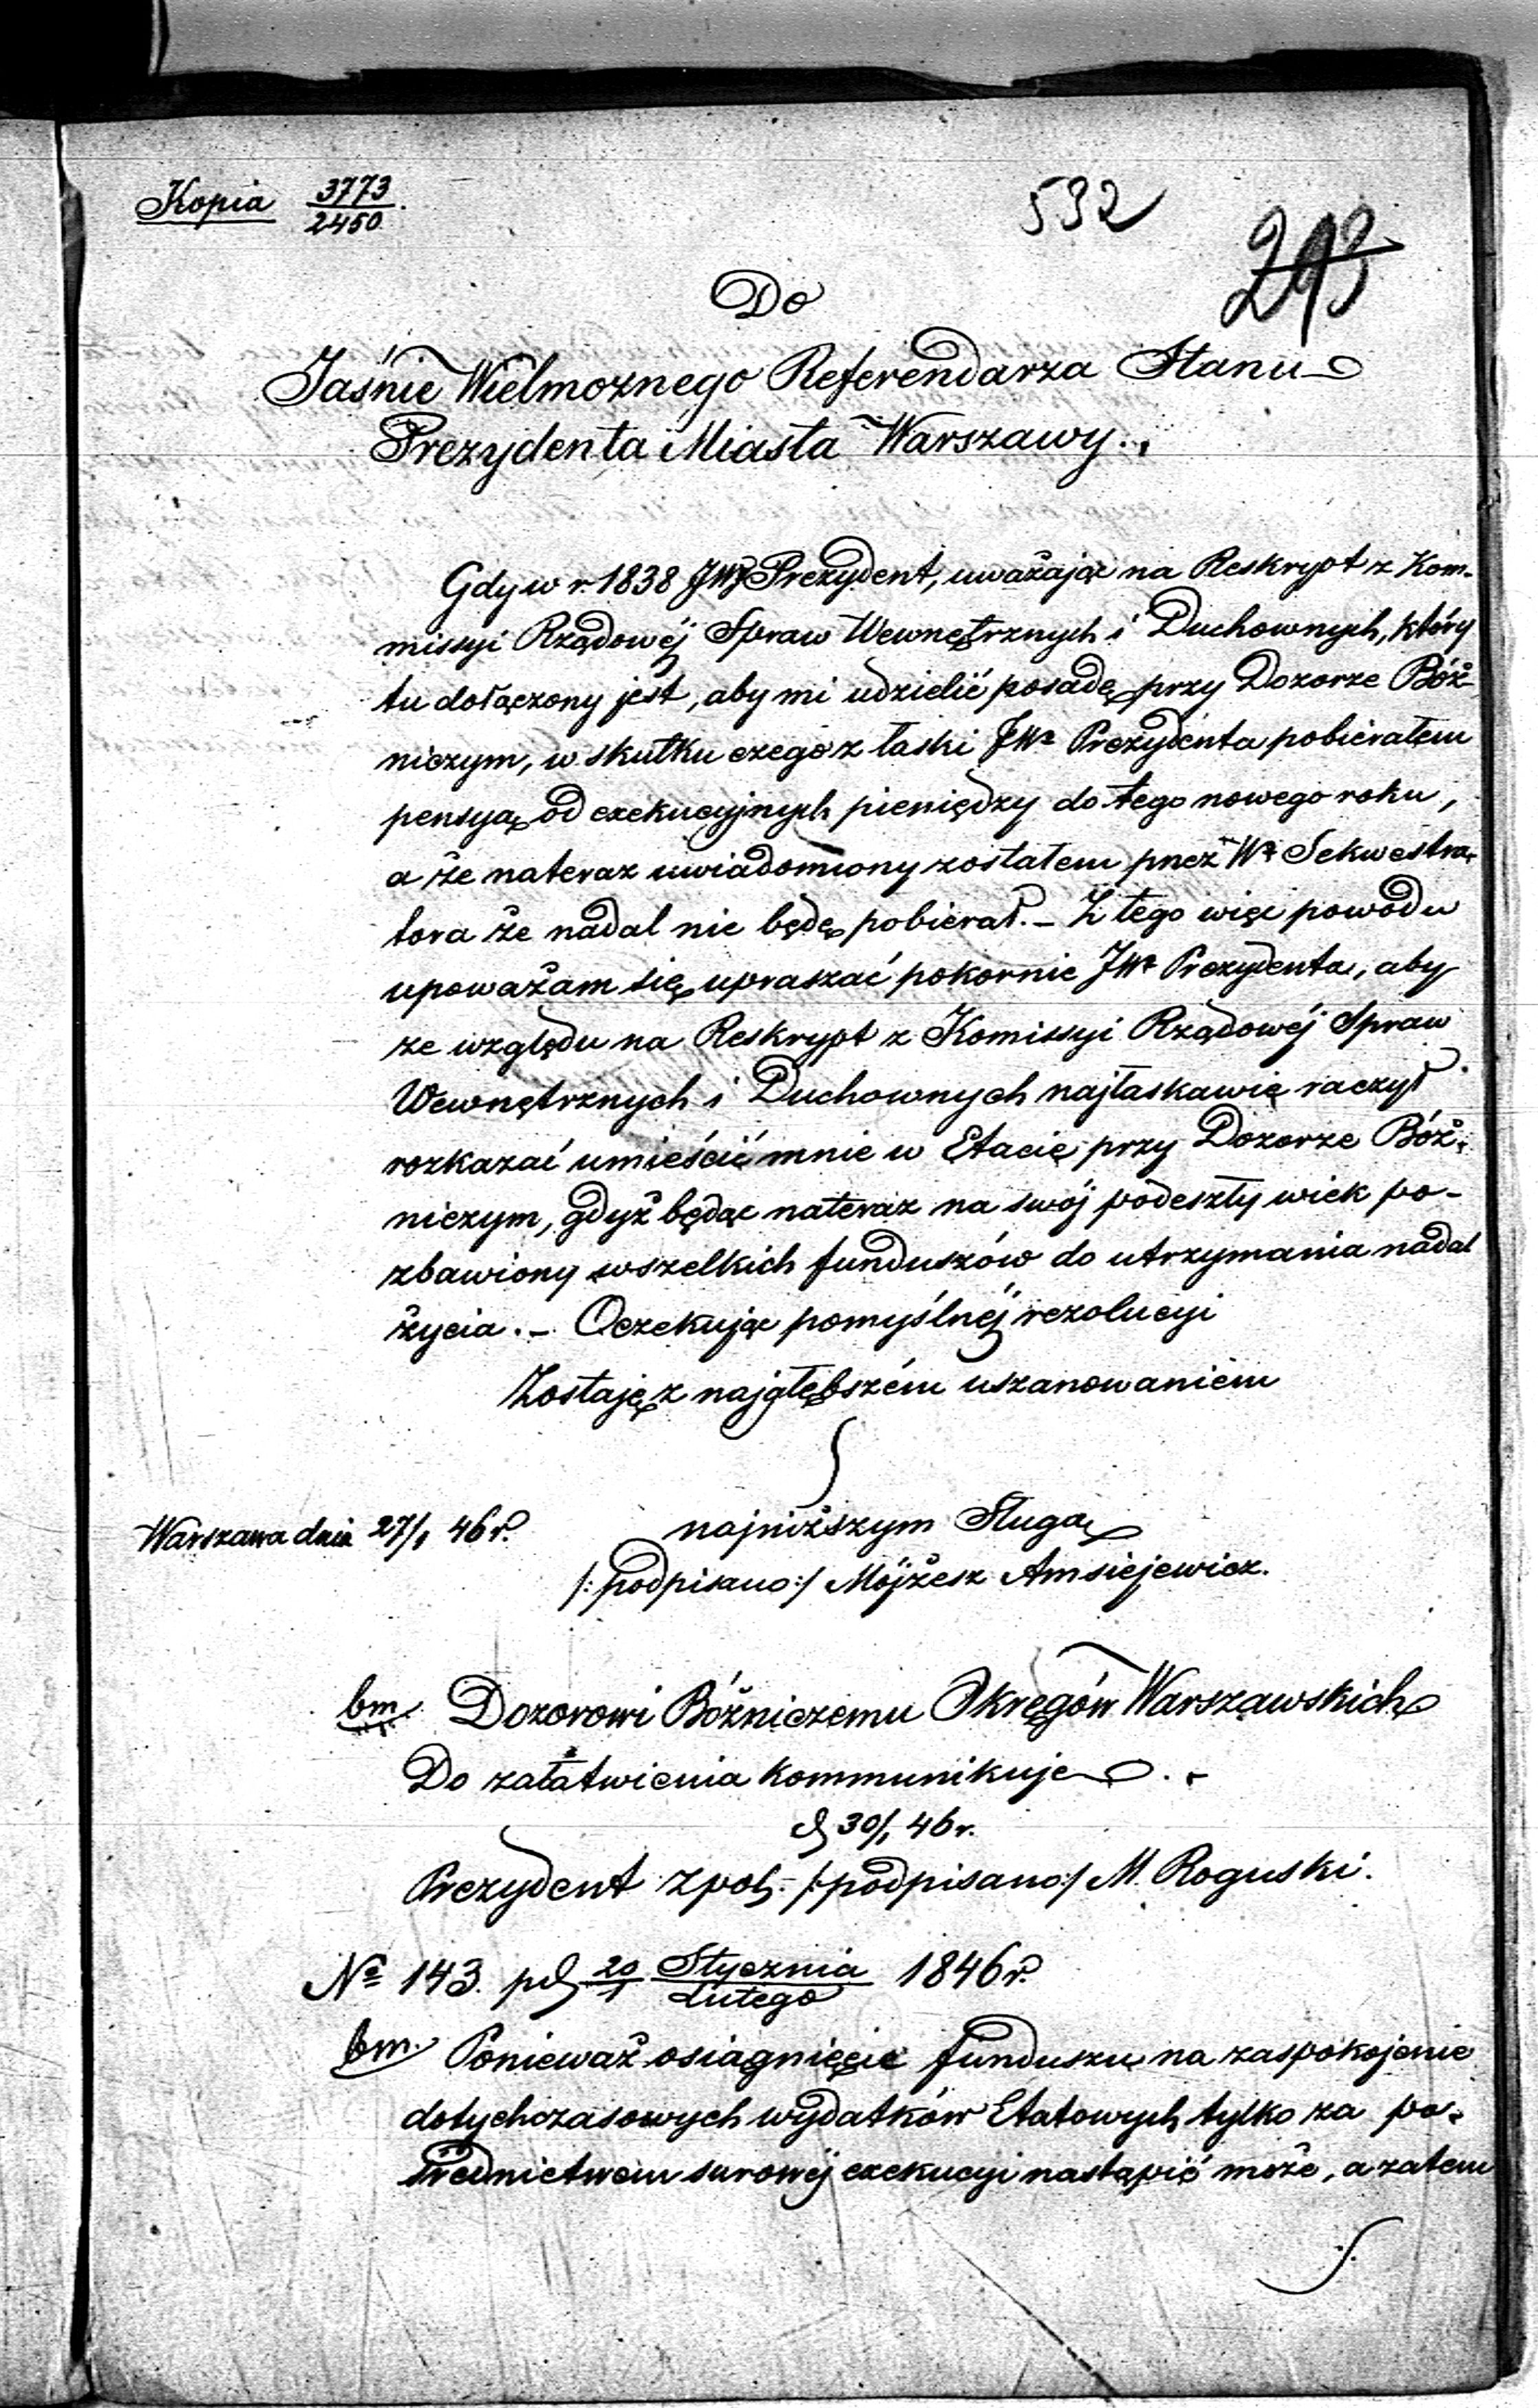 Kopia 3773/2450.
532
293
Do
Jaśnie Wielmożnego Referendarza Stanu
Prezydenta Miasta Warszawy.
Gdy w r. 1838 JW Prezydent, uważając na Reskrypt z Kom-
missyi Rządowéj Spraw Wewnętrznych i Duchownych, który
tu dołączony jest, aby mi udzielić posadę przy Dozorze Bóż-
niczym, w skutku czego z łaski JWº Prezydenta pobierałem
pensyą od exekucyjnych pieniędzy do tego nowego roku,
a że nateraz uwiadomiony zostałem przez Wº Sekwestra-
tora że nadal nie będę pobierał. – Z tego więc powodu
upoważam się upraszać pokornie JWº Prezydenta, aby
ze względu na Reskrypt z Komissyi Rządowéj Spraw
Wewnętrznych i Duchownych najłaskawie raczył
rozkazać umieścić mnie w Etacie przy Dozorze Bóż-
niczym, gdyż będąc nateraz na swój podeszły wiek po-
zbawiony wszelkich funduszów do utrzymania nadal
życia. – Oczekując pomyślnéj rezolucyi
Zostaję z najgłębszém uszanowaniem
Warszawa dnia 27/1 46 r. najniższym Sługą
/:podpisano:/ Mójżesz Amsiejewicz.
bm. Dozorowi Bóżniczemu Okręgów Warszawskich
Do załatwienia kommunikuje.
d 30/1 46 r.
Prezydent z pol. /:podpisano:/ M. Roguski.
Nº 143. pd 20/1 Stycznia/Lutego 1846 r.
bm. Ponieważ osiągnięcie funduszu na zaspokojenie
dotychczasowych wydatków Etatowych tylko za po-
średnictwem surowéj exekucyi nastąpić może, a zatem